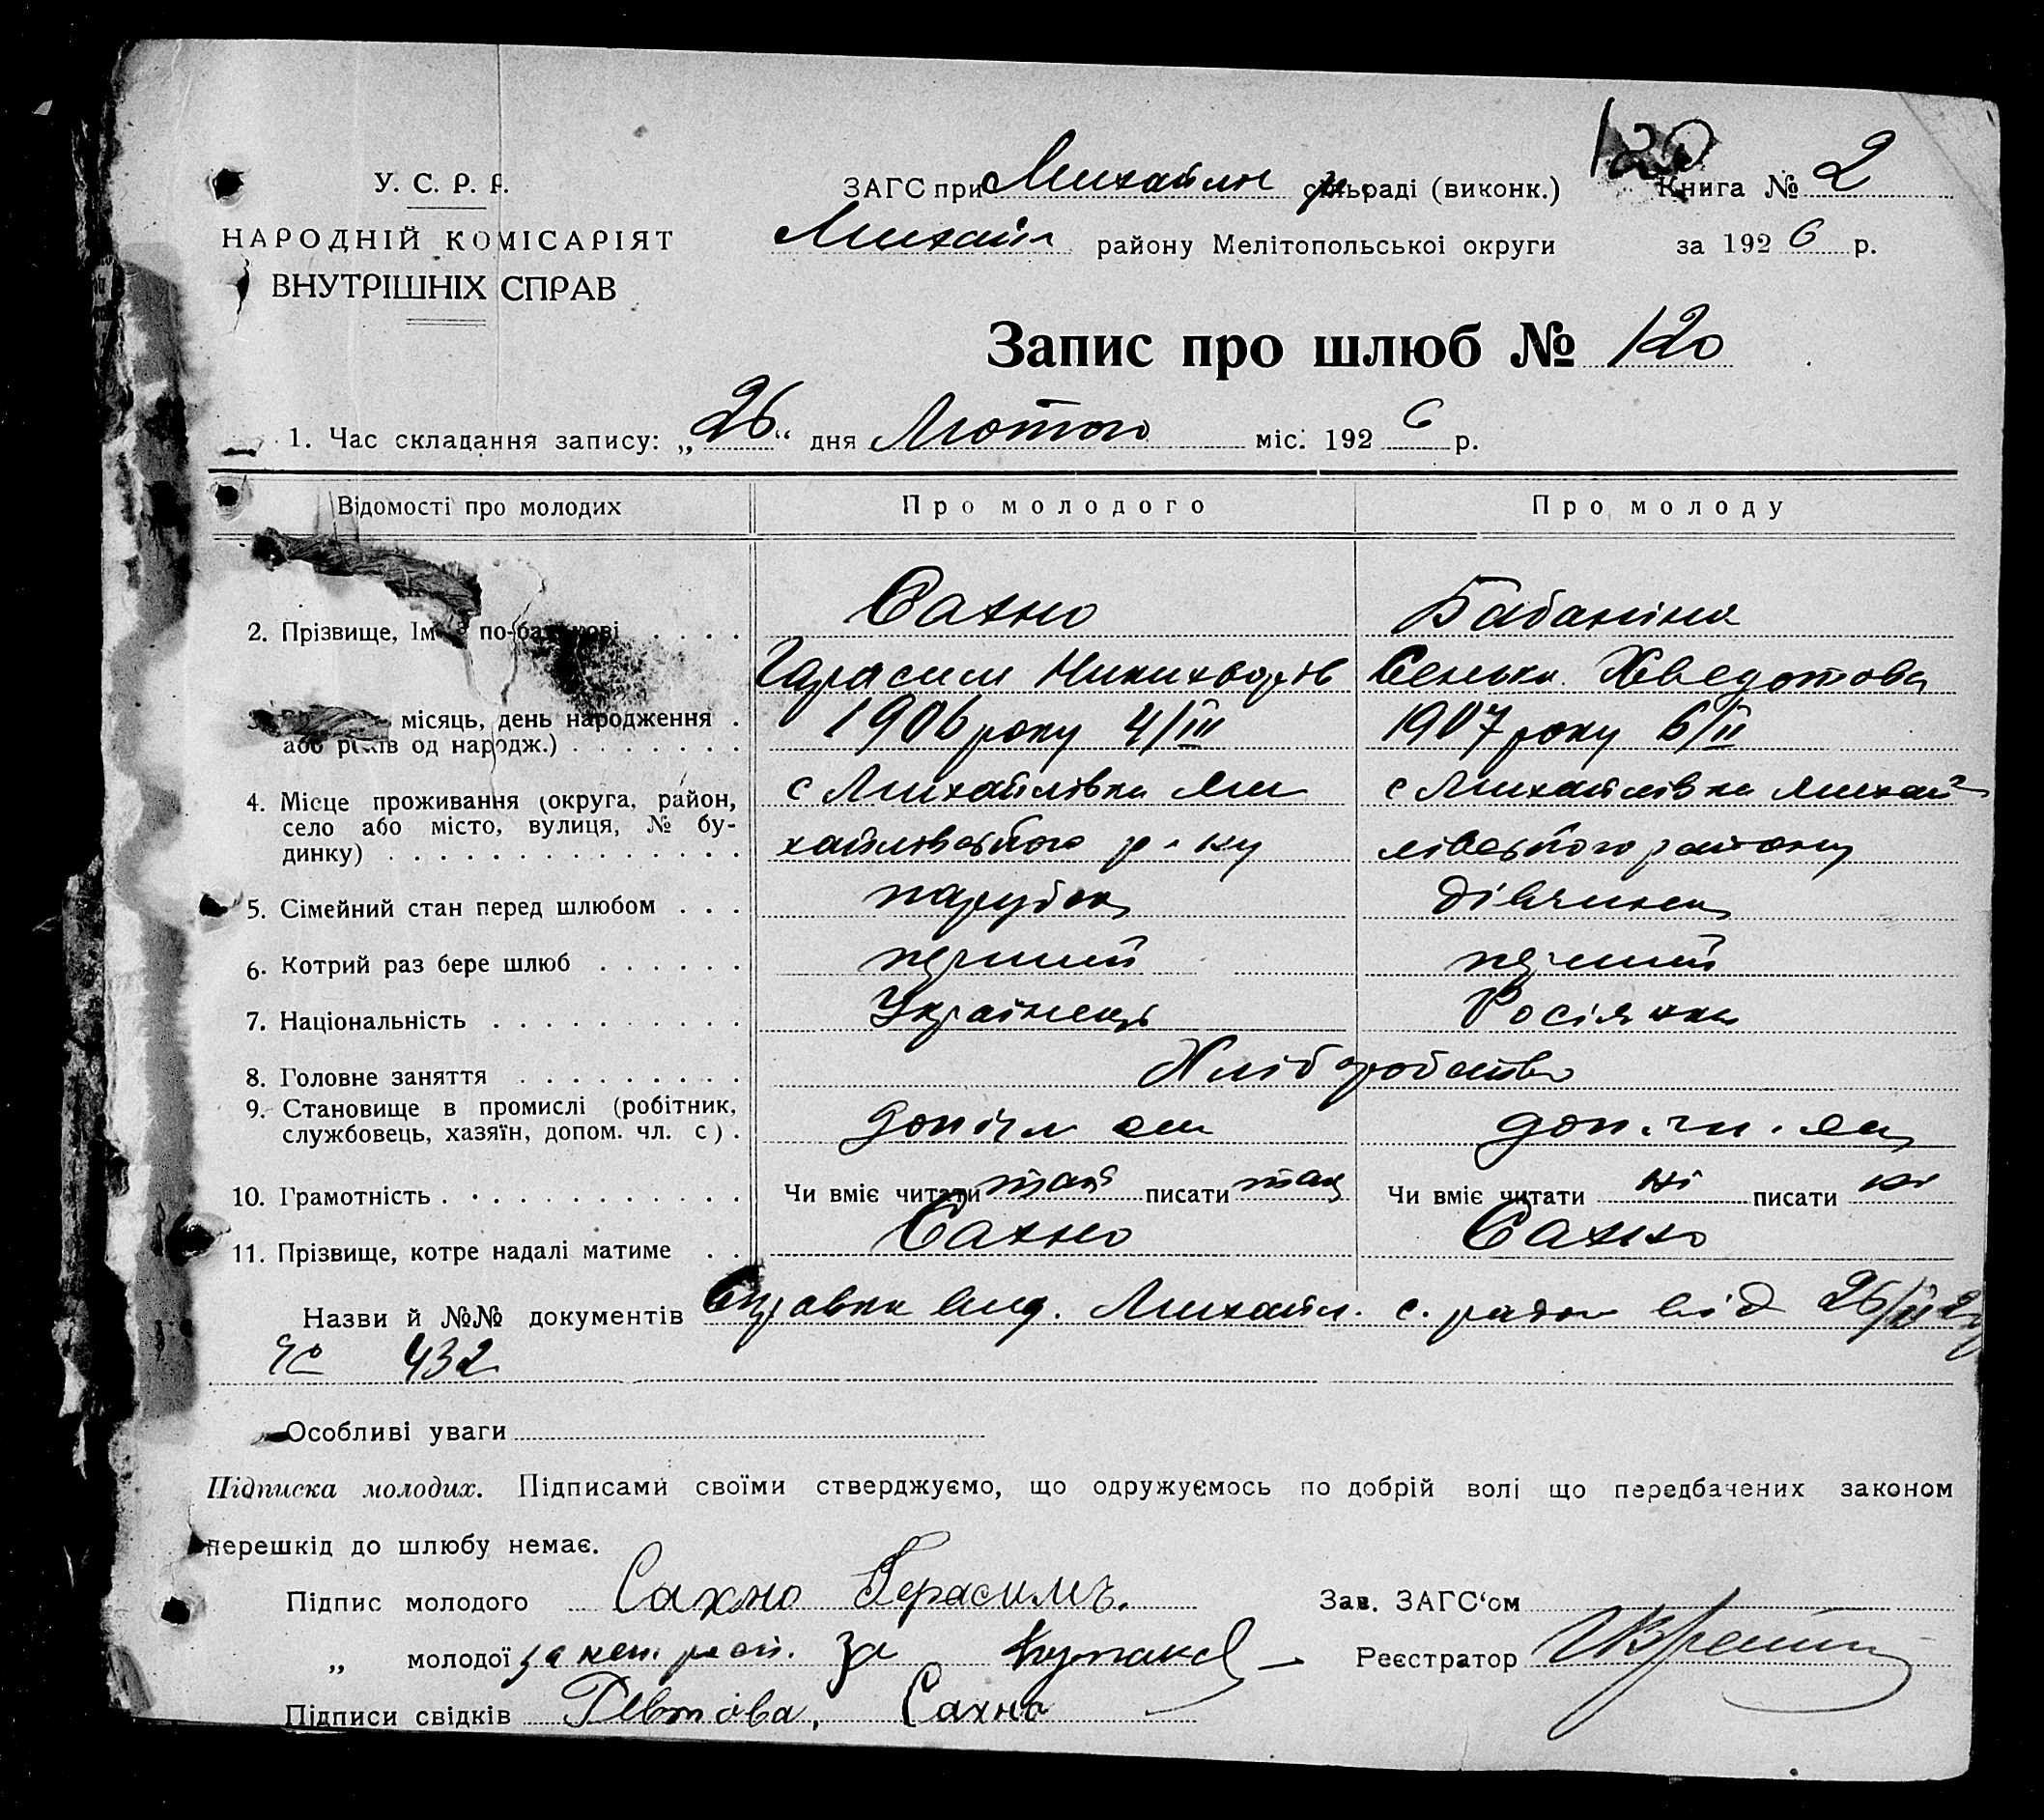 120
У. С. Р. Р. ЗАГС при Михайлів сільраді (виконк.) Книга № 2
НАРОДНІЙ КОМІСАРІЯТ Михайл району Мелітопольськоі округи за 1926 р.
ВНУТРІШНІХ СПРАВ
Запис про шлюб № 120
1. Час складання запису: „26“ дня Лютого міс. 1926 р.
Відомості про молодих Про молодого Про молоду
Сахно Бабаніна
2. Прізвище, Ім по-батькові . . . .
Гарасим Никихворів Хведотова
місяць, день народження . 1906 року 4/III 1907 року 6/II
або років од народж.) . . . . . . .
4. Місце проживання (округа, район, с Михайлівка Ми с Михайлівка Михай
село або місто, вулиця, № бу-
динку) . . . . . . . . . . . . . . хайлівського р-ну лівського району
5. Сімейний стан перед шлюбом . . . парубок дівчина
6. Котрий раз бере шлюб . . . . . . перший перший
7. Національність . . . . . . . . . . Українець Росіянка
8. Головне заняття . . . . . . . . . Хліборобство
9. Становище в промислі (робітник,
службовець, хазяїн, допом. чл. с) . доп. чл. см
10. Грамотність . . . . . . . . . . . . Чи вміє читати так писати так Чи вміє читати ні писати ні
11. Прізвище, котре надалі матиме . . Сахно Сахно
Назви й №№ документів Справка вид. Михайл. с. радою від 26/II 26
№ 432
Особливі уваги
Підписка молодих. Підписами своїми стверджуємо, що одружуємось по добрій волі що передбачених законом
перешкід до шлюбу немає.
Підпис молодого Сахно Герасимъ. Зав. ЗАГС‘ом
„ молодої за неп. расп. за Реєстратор
Підписи свідків Сахно